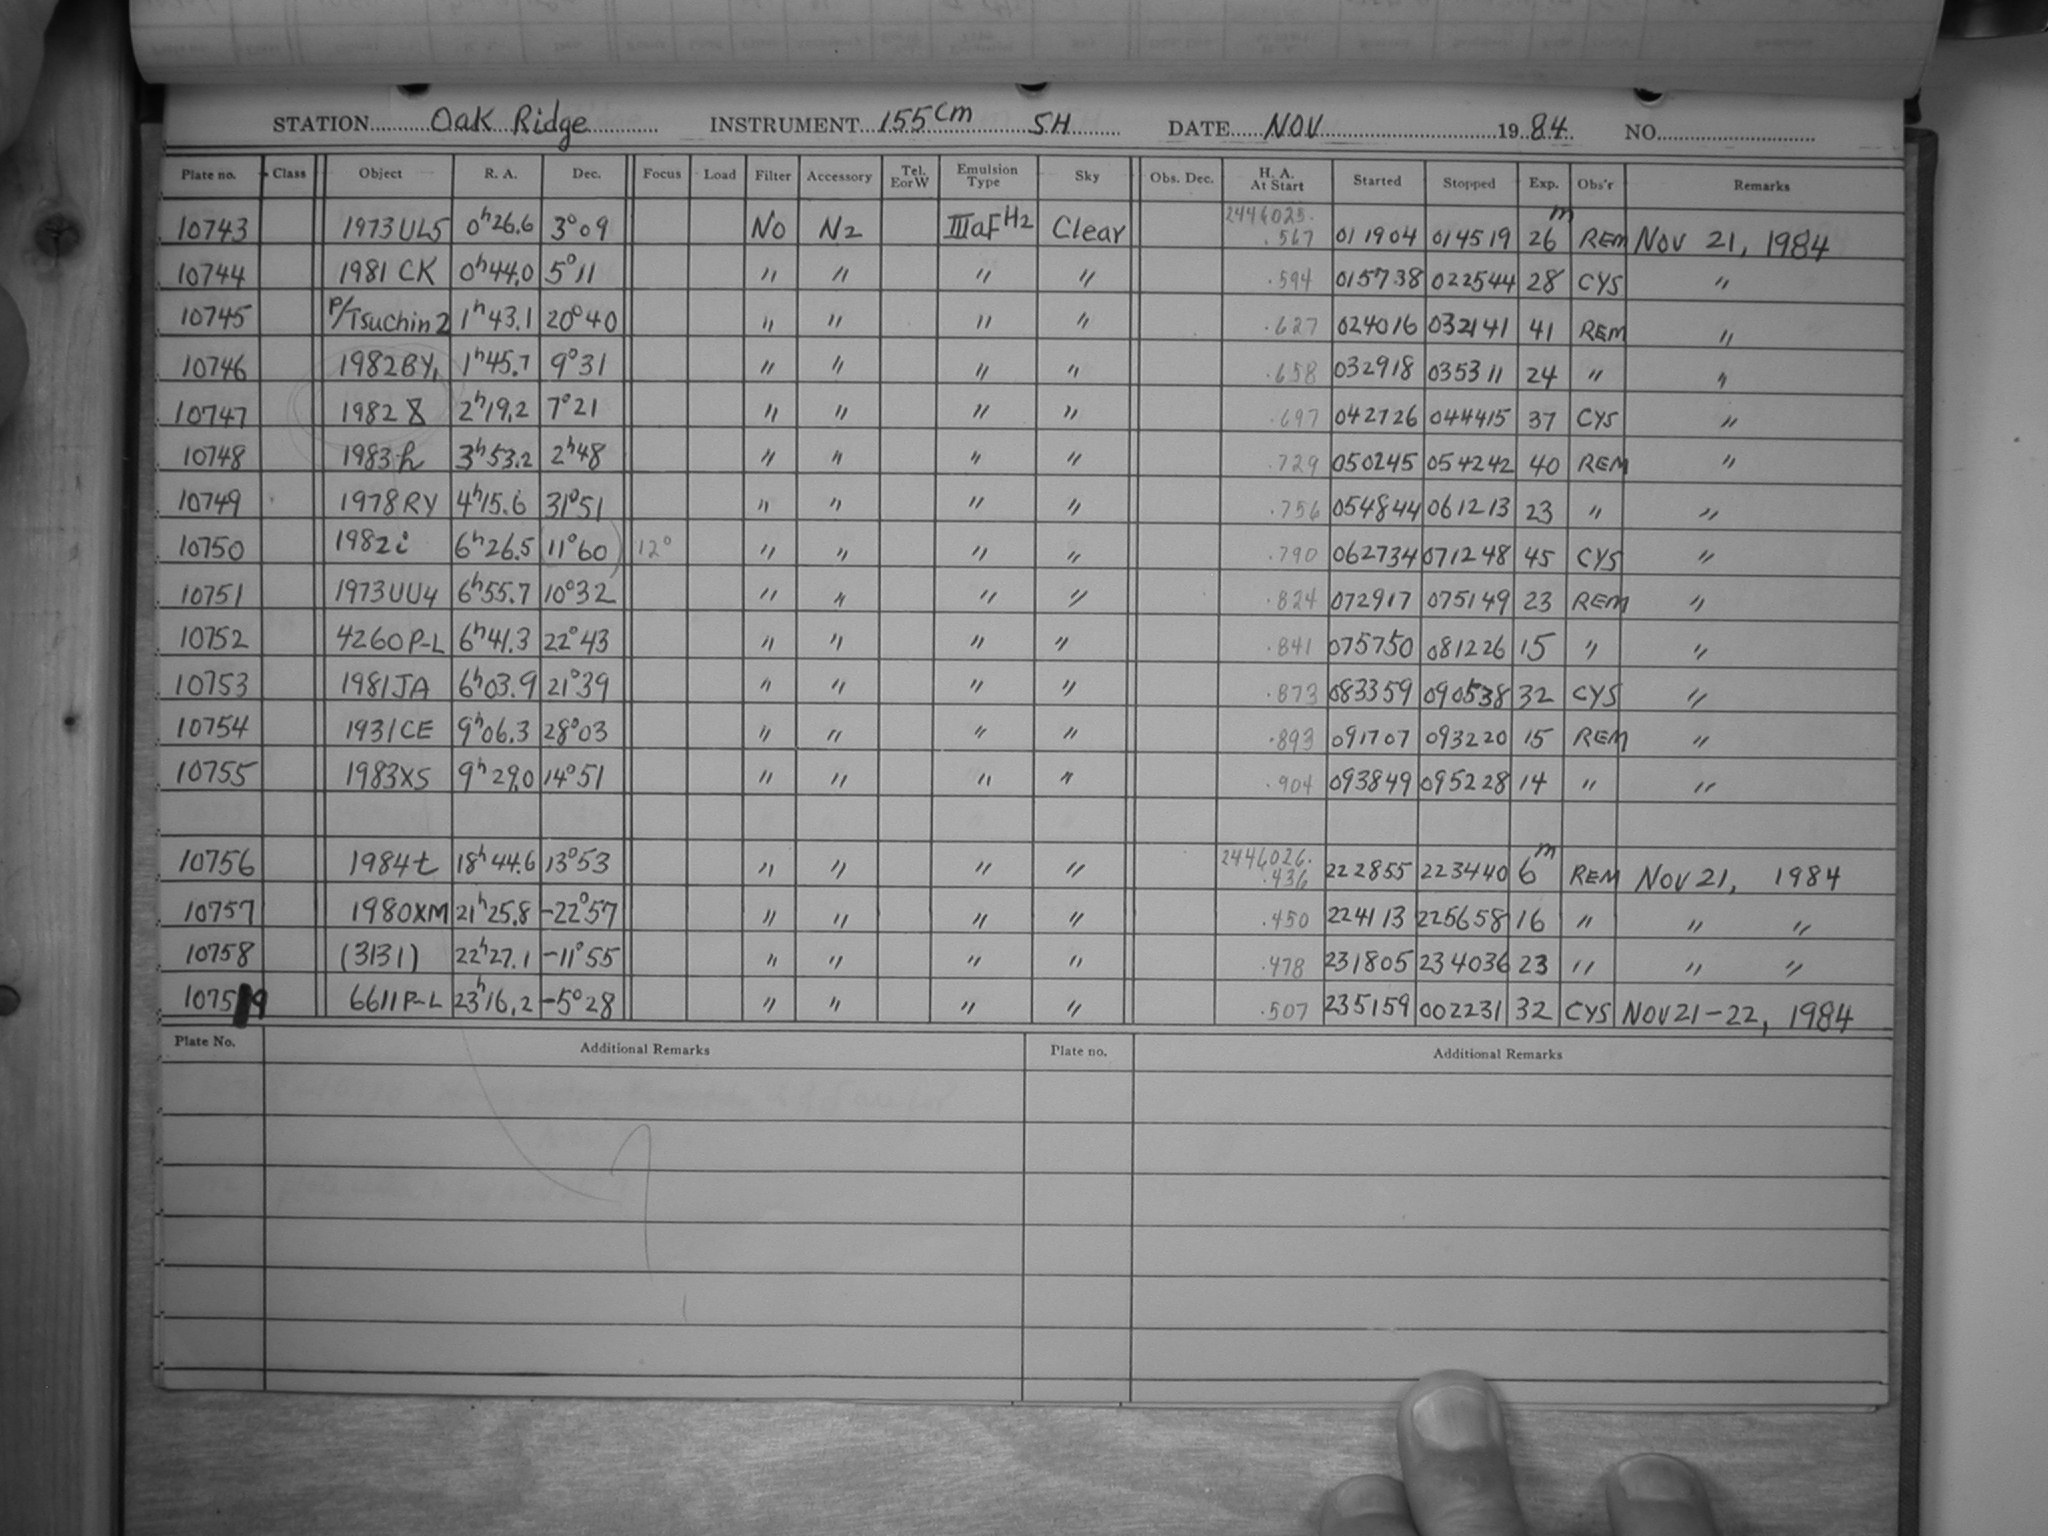 STATION Oak Ridge INSTRUMENT 155cm SH DATE NOV 1984 NO.
Plate no. Class Object R. A. Dec. Focus Load Filter Accessory Tel. E or W Emulsion Type Sky Obs. Dec. H. A. At Start Started Stopped Exp. Obs'r Remarks
10743 1973UL5 0h26.6 3°09 NO N2 IIIaF H2 Clear 2446025. .567 011904 014519 26m REM Nov 21, 1984
10744 1981 CK 0h44.0 5°11 " " " " .594 015738 022544 28 CYS "
10745 P/Tsuchin 2 1h43.1 20°40 " " " " .627 024016 032141 41 REM "
10746 1982BY1 1h45.7 9°31 " " " " .658 032918 035311 24 " "
10747 1982 2h19.2 7°21 " " " " .697 042726 044415 37 CYS "
10748 1983h 3h53.2 2h48 " " " " .729 050245 054242 40 REM "
10749 1978RY 4h15.6 31°51 " " " " .756 054844 061213 23 " "
10750 1982i 6h26.5 (11°60) 12° " " " " .790 062734 071248 45 CYS "
10751 1973UU4 6h55.7 10°32 " " " " .824 072917 075149 23 REM "
10752 4260P-L 6h41.3 22°43 " " " " .841 075750 081226 15 " "
10753 1981JA 6h03.9 21°39 " " " " .873 083359 090538 32 CYS "
10754 1931CE 9h06.3 28°03 " " " " .893 091707 093220 15 REM "
10755 1983XS 9h29.0 14°51 " " " " .904 093849 095228 14 " "
10756 1984t 18h44.6 13°53 " " " " 2446026. .436 222855 223440 6m REM Nov 21, 1984
10757 1980XM 21h25.8 -22°57 " " " " .450 224113 225658 16 " " "
10758 (3131) 22h27.1 -11°55 " " " " .478 231805 234036 23 " " "
10759 6611P-L 23h16.2 -5°28 " " " " .507 235159 002231 32 CYS Nov 21-22, 1984
Plate No. Additional Remarks Plate no. Additional Remarks